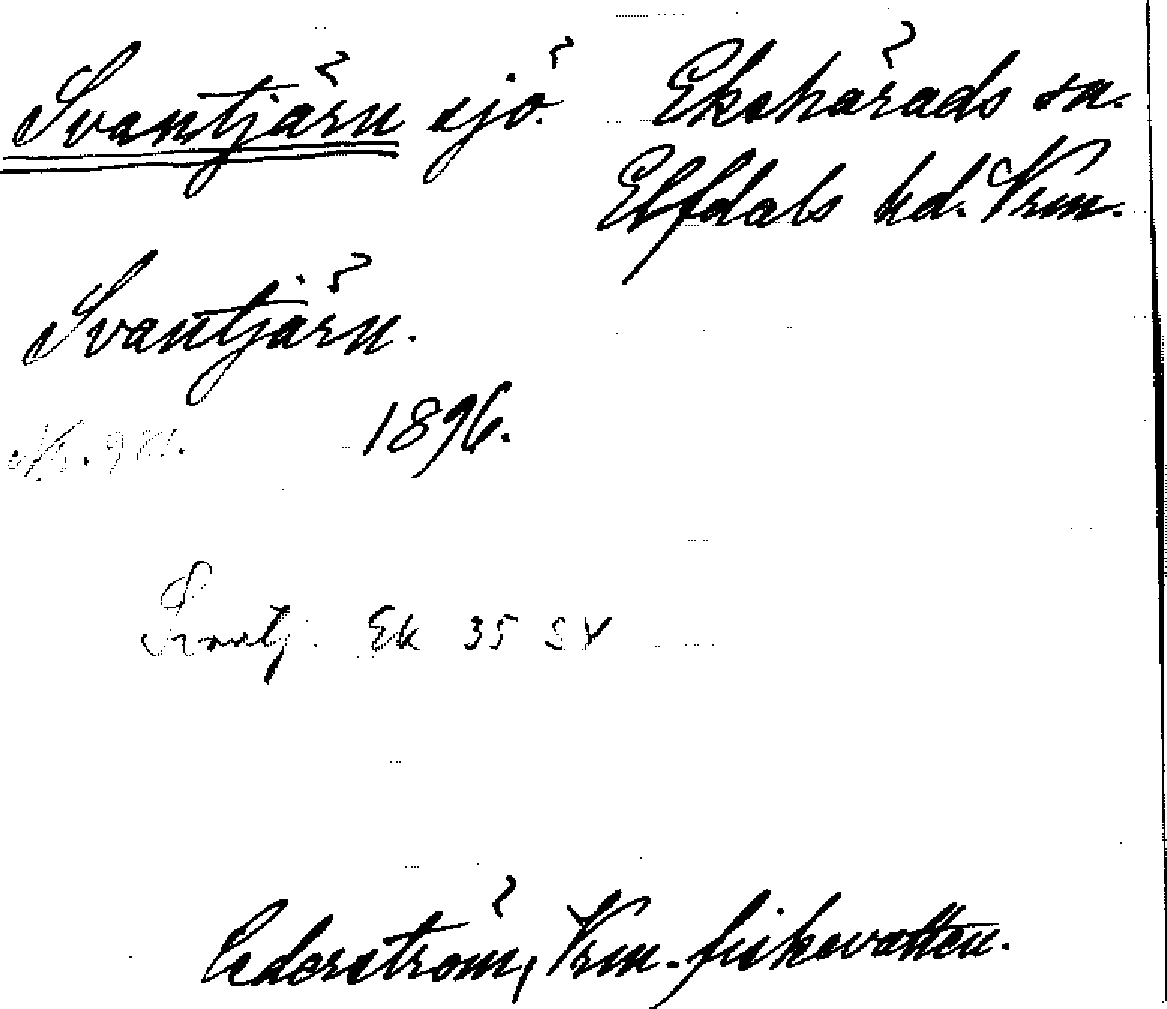 Svantjärn sjö. Ekshärads sn.
Elfdals hd. Vrm.
Svantjärn.
1896.
Svantj. Ek 35 SV
Cederström, Vrm. fiskevatten.